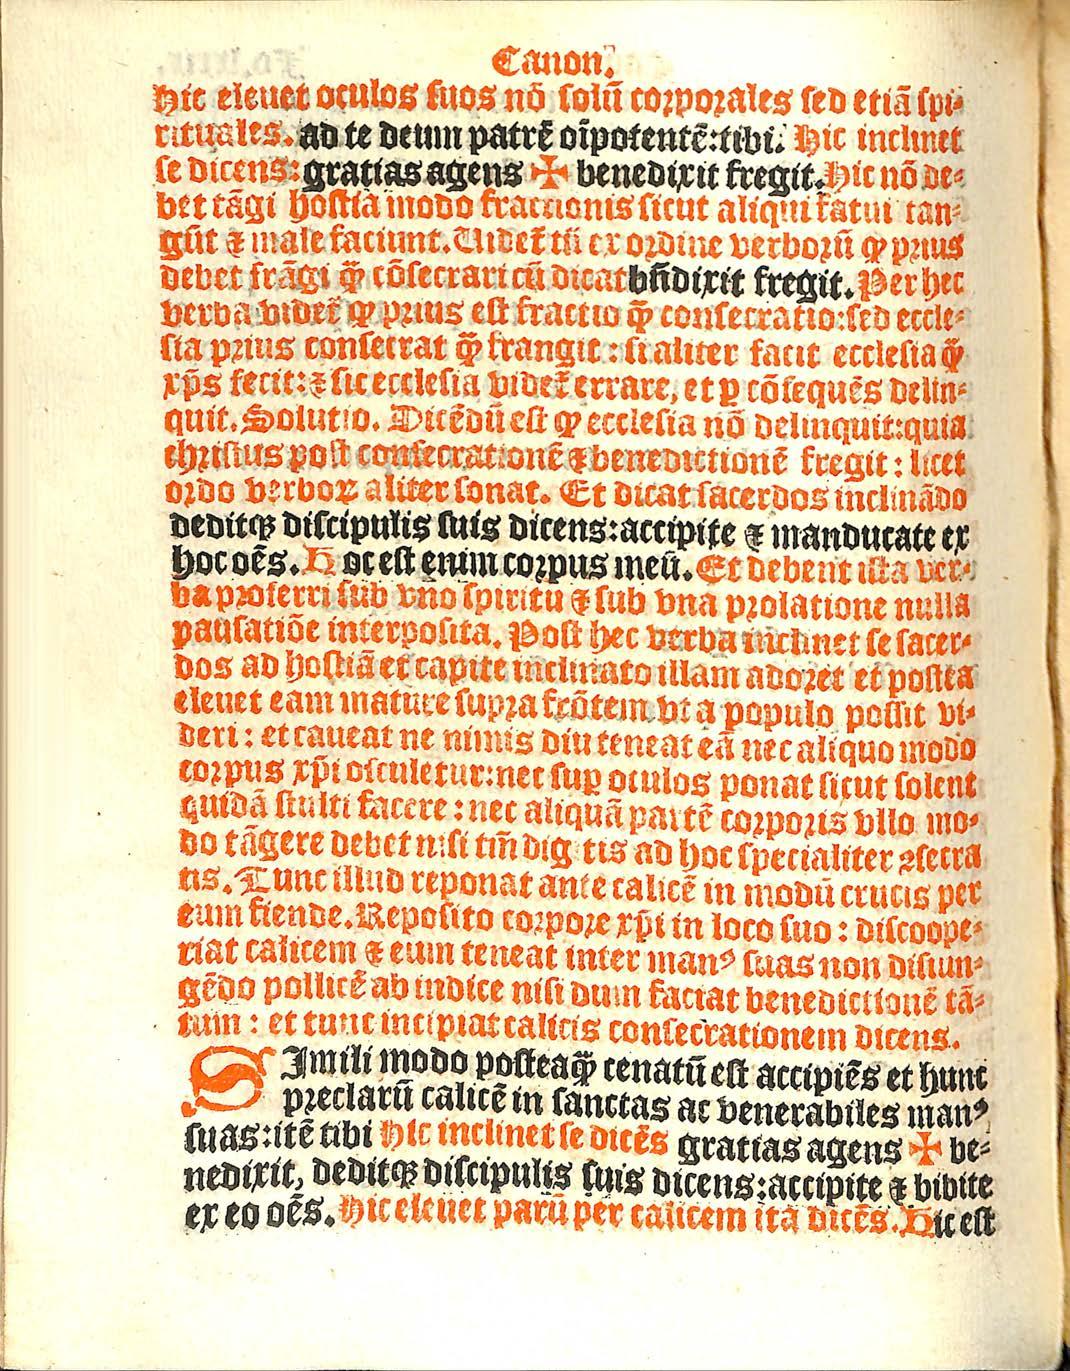 Canon.
Hic eleuet oculos suos nō solū corporales sed etiā spi-
rituales. ad te deum patrē oīpotentē: tibi. Hic inclinet
se dicens: gratias agens ✠ benedixit fregit. Hic nō de-
bet tāgi hostia modo fractionis sicut aliqui fatui tan-
gūt ⁊ male faciunt. Videt᷑ tn̄ ex ordine verborū ꝙ prius
debet frāgi q̄ꝫ cōsecrari cū dicat bn̄dixit fregit. Per hec
verba videt᷑ ꝙ prius est fractio q̄ꝫ consecratio: sed eccle-
sia prius consecrat q̄ꝫ frangit: si aliter facit ecclesia q̄ꝫ
xp̄s fecit: ⁊ sic ecclesia videt᷑ errare, et ꝑ cōsequēs delin-
quit. Solutio. Dicēdū est ꝙ ecclesia nō delinquit: quia
christus post consecrationē ⁊ benedictionē fregit: licet
ordo verboꝝ aliter sonat. Et dicat sacerdos inclinādo
deditqꝫ discipulis suis dicens: accipite ⁊ manducate ex
hoc oēs. Hoc est enim corpus meū. Et debent ista ver-
ba proferri sub vno spiritu ⁊ sub vna prolatione nulla
pausatiōe interposita. Post hec verba inclinet se sacer-
dos ad hostiā et capite inclinato illam adoret et postea
eleuet eam mature supra frōtem vt a populo possit vi-
deri: et caueat ne nimis diu teneat eā nec aliquo modo
corpus xp̄i osculetur: nec suꝑ oculos ponat sicut solent
quidā stulti facere: nec aliquā partē corporis vllo mo-
do tāgere debet nisi tm̄ digitis ad hoc specialiter ꝯsecra
tis. Tunc illud reponat ante calicē in modū crucis per
eum fiende. Reposito corpore xp̄i in loco suo: discoope-
riat calicem ⁊ eum teneat inter manꝰ suas non disiun-
gēdo pollicē ab indice nisi dum faciat benedictionē tā-
tum: et tunc incipiat calicis consecrationem dicens.
SImili modo posteaq̄ꝫ cenatū est accipiēs et hunc
preclarū calicē in sanctas ac venerabiles manꝰ
suas: itē tibi Hic inclinet se dicēs gratias agens ✠ be-
nedixit, deditqꝫ discipulis suis dicens: accipite ⁊ bibite
ex eo oēs. Hic eleuet parū per calicem ita dicēs. Hic est